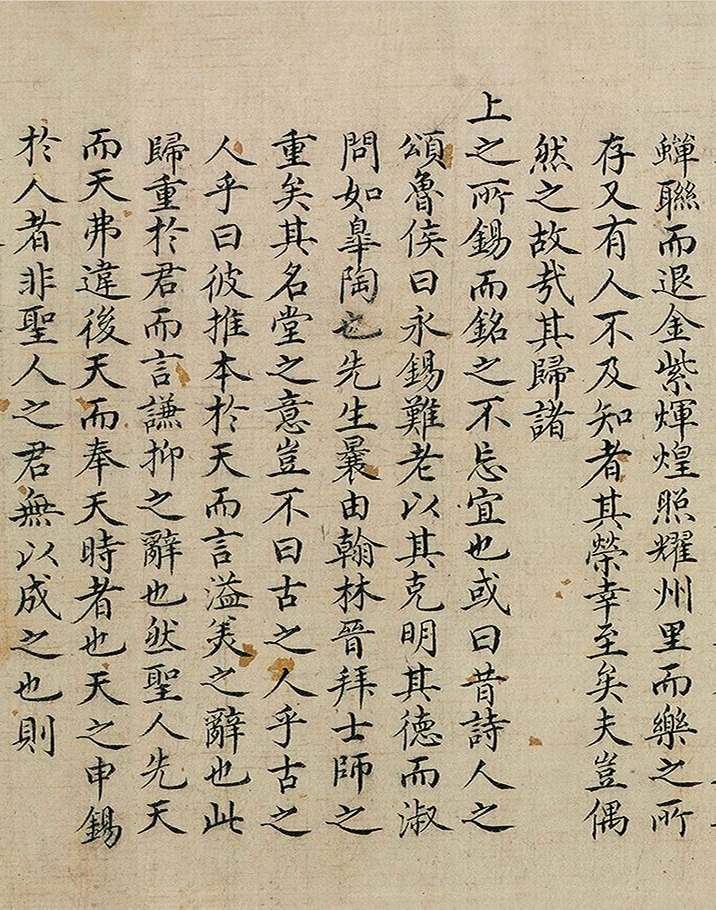 蟬聯而退金紫煇煌照耀州里而樂之所
存又有人不及知者其榮幸至矣夫豈偶
然之故哉其歸諸
上之所錫而銘之不忘宜也或曰昔詩人之
頌魯侯曰永錫難老以其克明其德而淑
問如臯陶也先生曩由翰林晉拜士師之
重矣其名堂之意豈不曰古之人乎古之
人乎曰彼推本於天而言溢美之辭也此
歸重於君而言謙抑之辭也然聖人先天
而天弗違後天而奉天時者也天之申錫
於人者非聖人之君無以成之也則